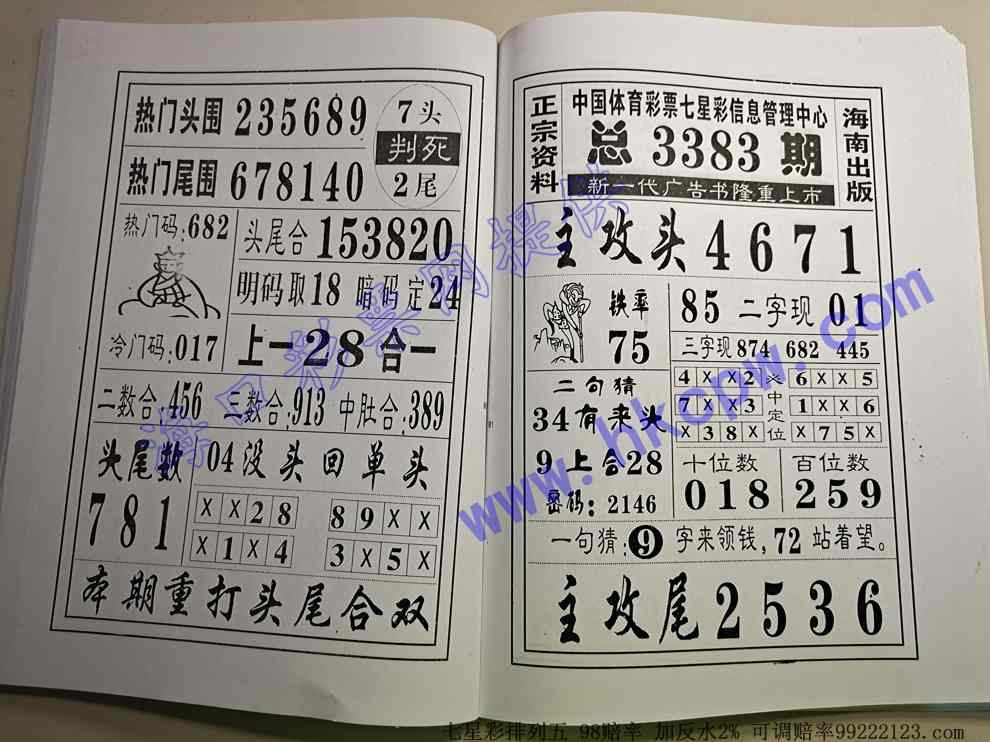 热门头围 235689
7头
判死
2尾
热门尾围 678140
热门码:682
头尾合 153820
明码取18 暗码定24
冷门码:017
上一28合一
二数合:456 三数合:913 中肚合:389
头尾数
781
04没头回单头
XX28 89XX
X1X4 3X5X
本期重打头尾合双
正宗资料
中国体育彩票七星彩信息管理中心
总 3383 期
新一代广告书隆重上市
海南出版
主攻头 4671
铁率
75
85 二字现 01
三字现 874 682 445
二句猜
34有来头
9上合28
密码:2146
4XX2 6XX5
7XX3 1XX6
X38X X75X
中定位
十位数
018
百位数
259
一句猜:9字来领钱,72站着望。
主攻尾 2536
海口彩票网提供
www.hkcpw.com
七星彩排列五 98赔率 加反水2% 可调赔率99222123.com